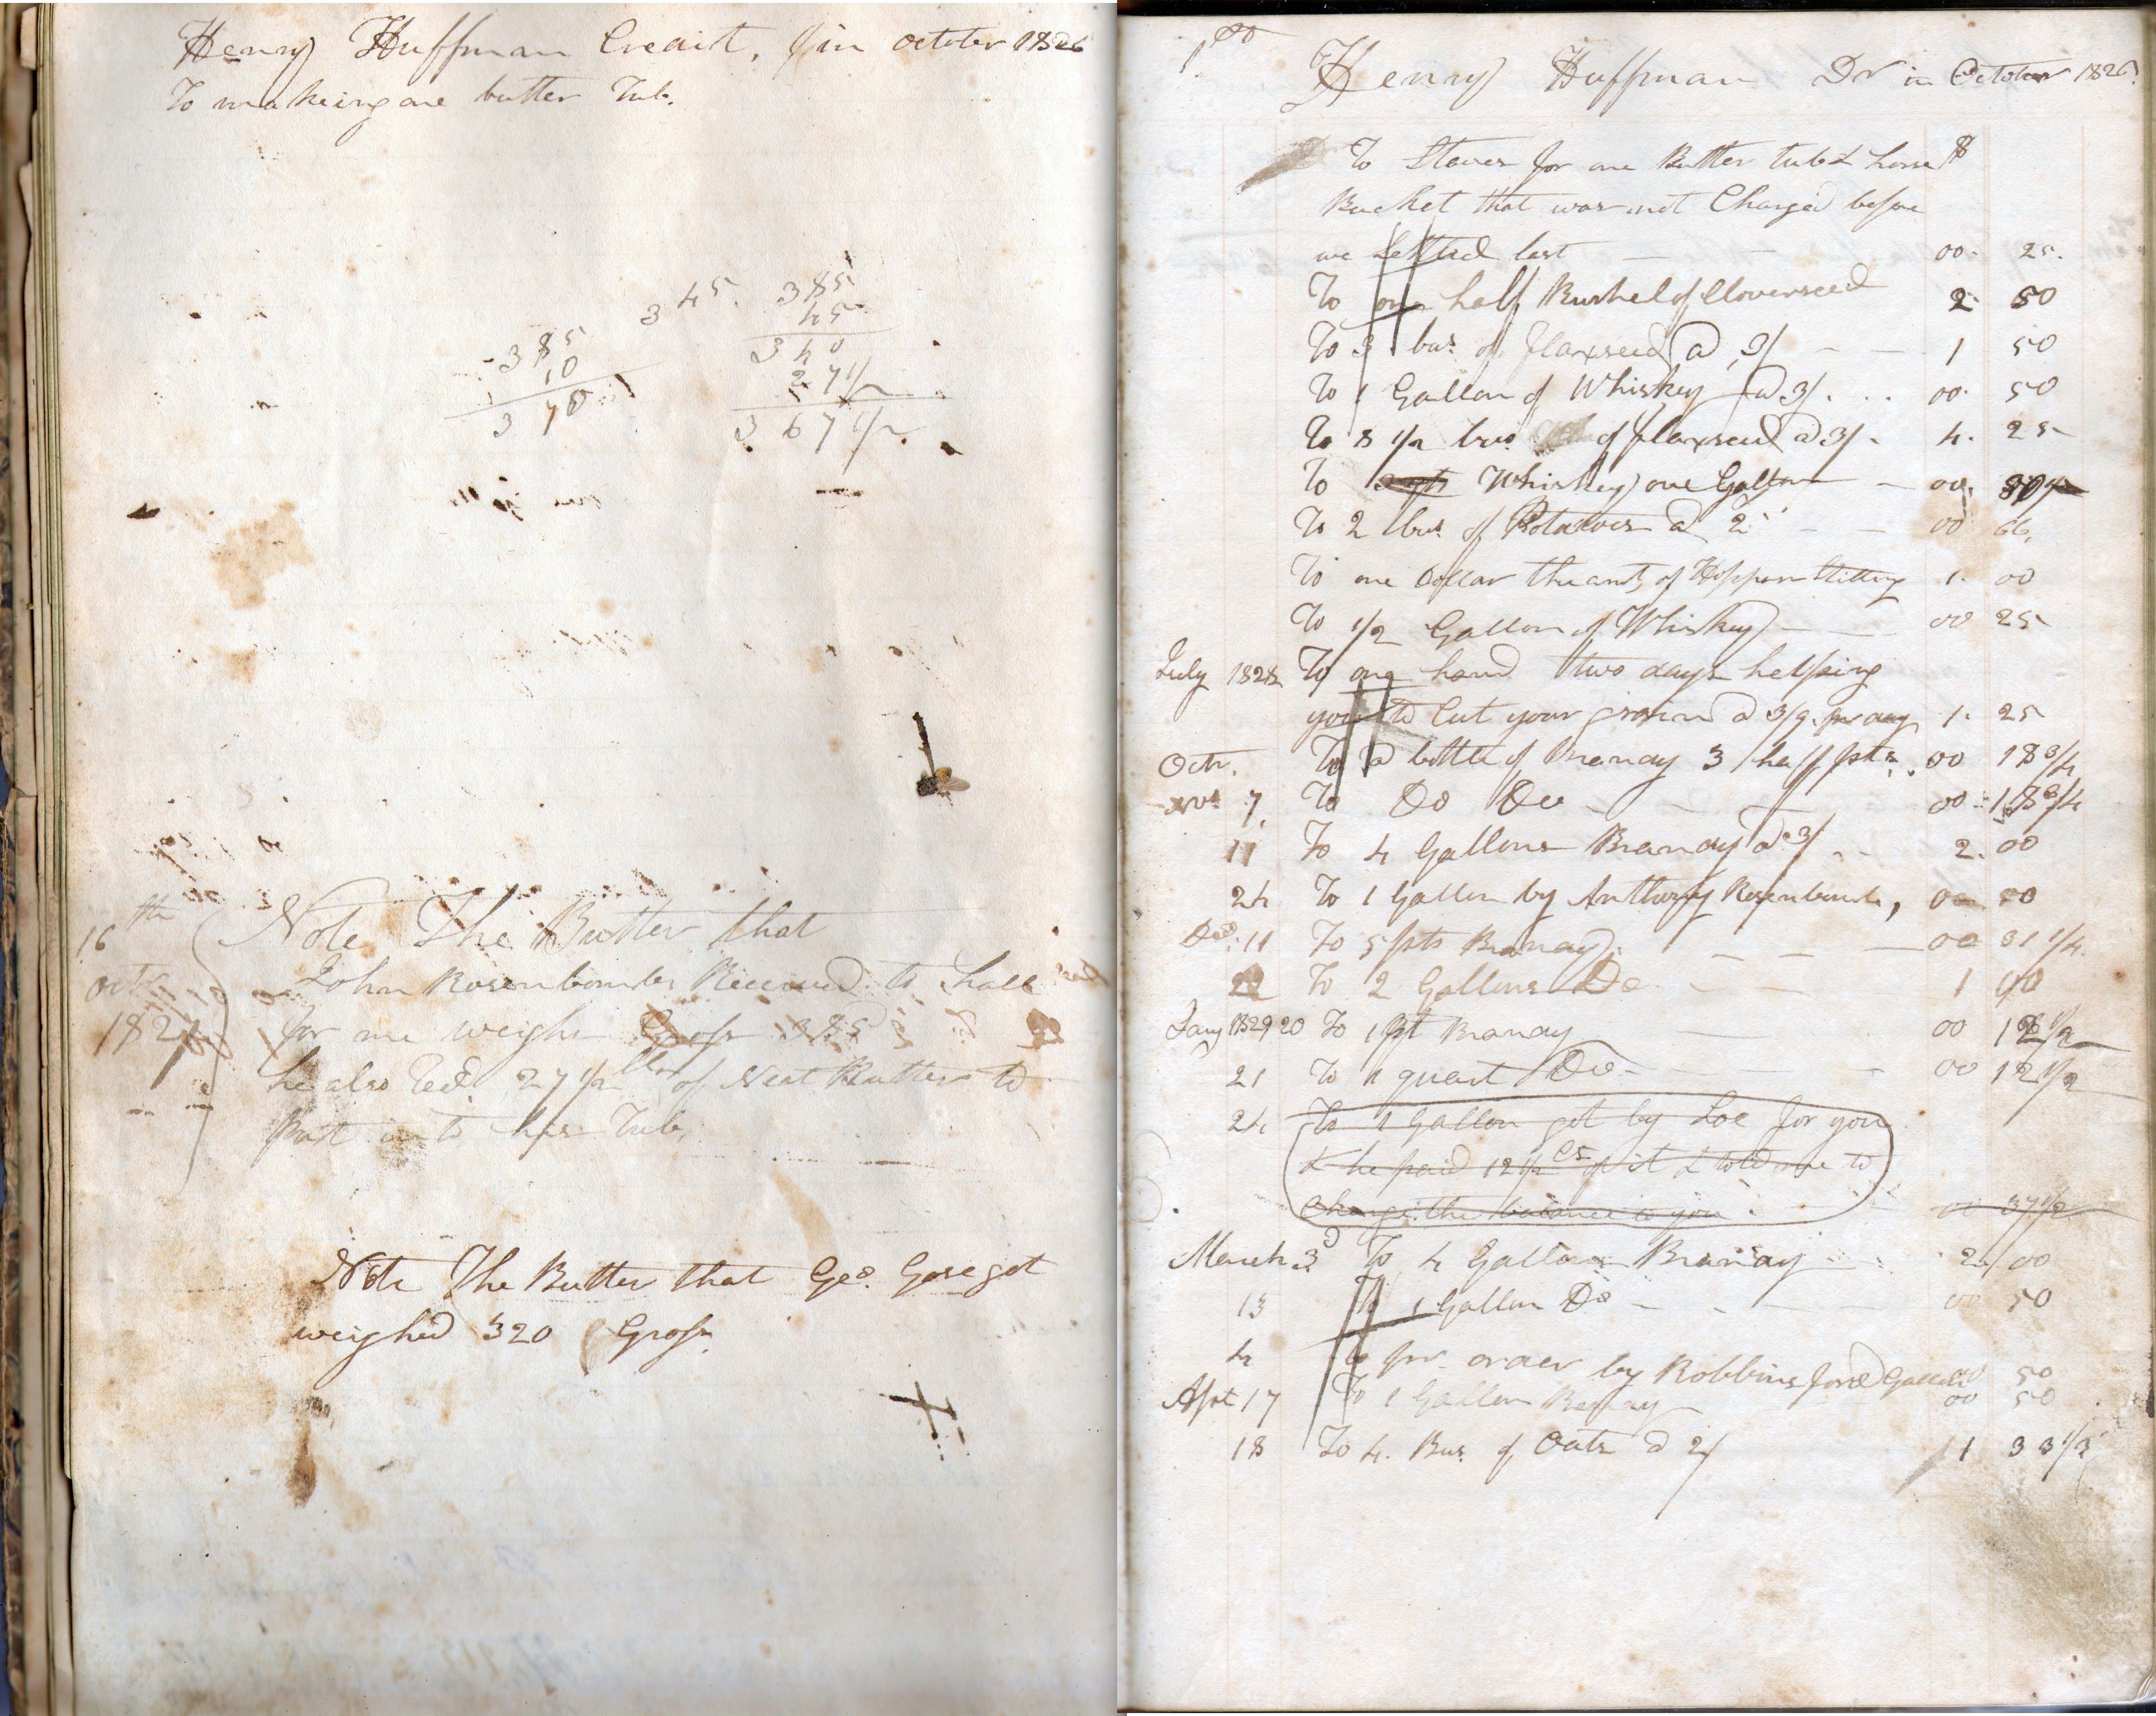 Henry Huffman Credit, in october 1826
To makeing one butter Tub.
345.
385
45
340
27 1/2
367 1/2
385
10
370
16th Octr 182
Note The Butter that
John Rosenbomber Received to hall
for me weighs Gross 385
he also Recd. 27 1/2 lbs of Neat Butter to
Putt in to his Tub.
Note The Butter that Geo. Gose got
weighed 320 Gross
Henry Huffman Dr in October 1826
To Staves for one Butter tub & horse $
Bucket that was not Charged before
we Settled last 00. 25.
To one half Bushel of Cloverseed 2. 50
To 3 bus. of flaxseed @ 3/ 1 50
To 1 Gallon of Whiskey @ 3/ 00. 50
To 8 1/2 bus of flaxseed @ 3/ 4. 25
To Whiskey one Gallon 00.
To 2 bus. of Potatoes @ 2 00 66.
To one Dollar the amt, of 1. 00
To 1/2 Gallon of Whiskey 00 25
July 1828 To one hand two days helping
you to Cut your grain @ 3/9. pr day 1. 25
Octr. To a bottle of Brandy 3 half pts. 00 18 3/4
Nov 7, To Do Do 00 18 3/4
11 To 4 Gallons Brandy @ 3/ 2. 00
24 To 1 Gallon by Anthony 00 50
Dec. 11 To 5 pts Brandy 00 31 1/4.
22 To 2 Gallons Do 1 00
Jany 1829 20 To 1 pt Brandy 00 12 1/2
21 To 1 quart Do 00 12 1/2
24 To 1 Gallon got by Loe for you
& he paid 12 1/2 cs of it & told me to
Charge the balance to you 00 37 1/2
March 3d To 4 Gallons Brandy 2. 00
13 To 1 Gallon Do 00 50
4 To pr order by Robbins for Gallon 50
Aprl 17 To 1 Gallon Brandy 00 50
18 To 4. Bus. of Oats @ 2/ 1 33 1/3